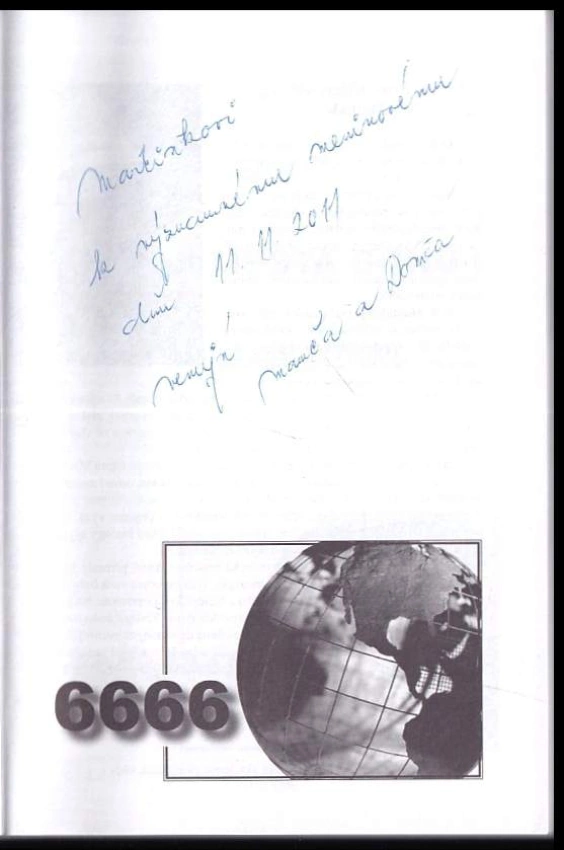 Martinkovi
k významnému meninovému
dňu 11. 11. 2011
venujú
mamča a Domča
6666